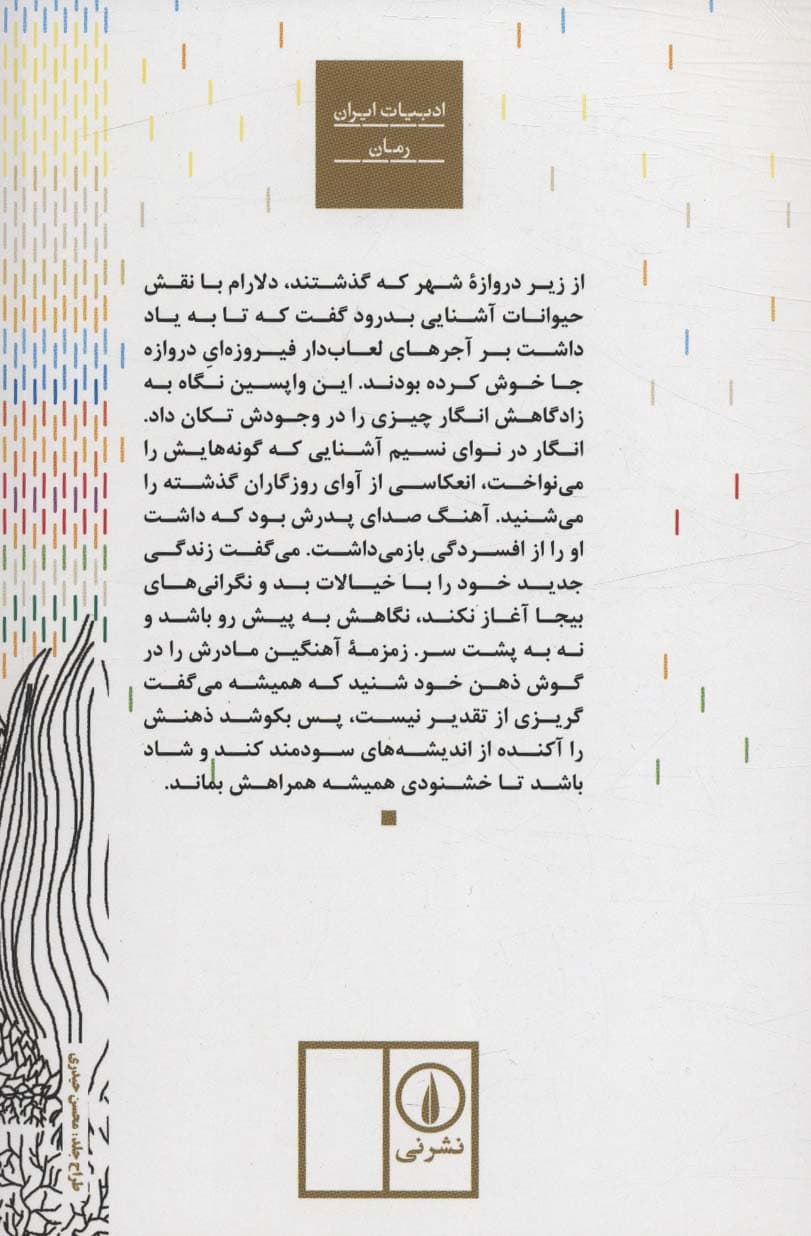 ادبیات ایران
رمان
از زیر دروازهٔ شهر که گذشتند، دلارام با نقش
حیوانات آشنایی بدرود گفت که تا به یاد
داشت بر آجرهای لعاب‌دار فیروزه‌ایِ دروازه
جا خوش کرده بودند. این واپسین نگاه به
زادگاهش انگار چیزی را در وجودش تکان داد.
انگار در نوای نسیم آشنایی که گونه‌هایش را
می‌نواخت، انعکاسی از آوای روزگاران گذشته را
می‌شنید. آهنگ صدای پدرش بود که داشت
او را از افسردگی بازمی‌داشت. می‌گفت زندگی
جدید خود را با خیالات بد و نگرانی‌های
بیجا آغاز نکند، نگاهش به پیش رو باشد و
نه به پشت سر. زمزمهٔ آهنگین مادرش را در
گوش ذهن خود شنید که همیشه می‌گفت
گریزی از تقدیر نیست، پس بکوشد ذهنش
را آکنده از اندیشه‌های سودمند کند و شاد
باشد تا خشنودی همیشه همراهش بماند.
نشرنی
طراح جلد: محسن حیدری